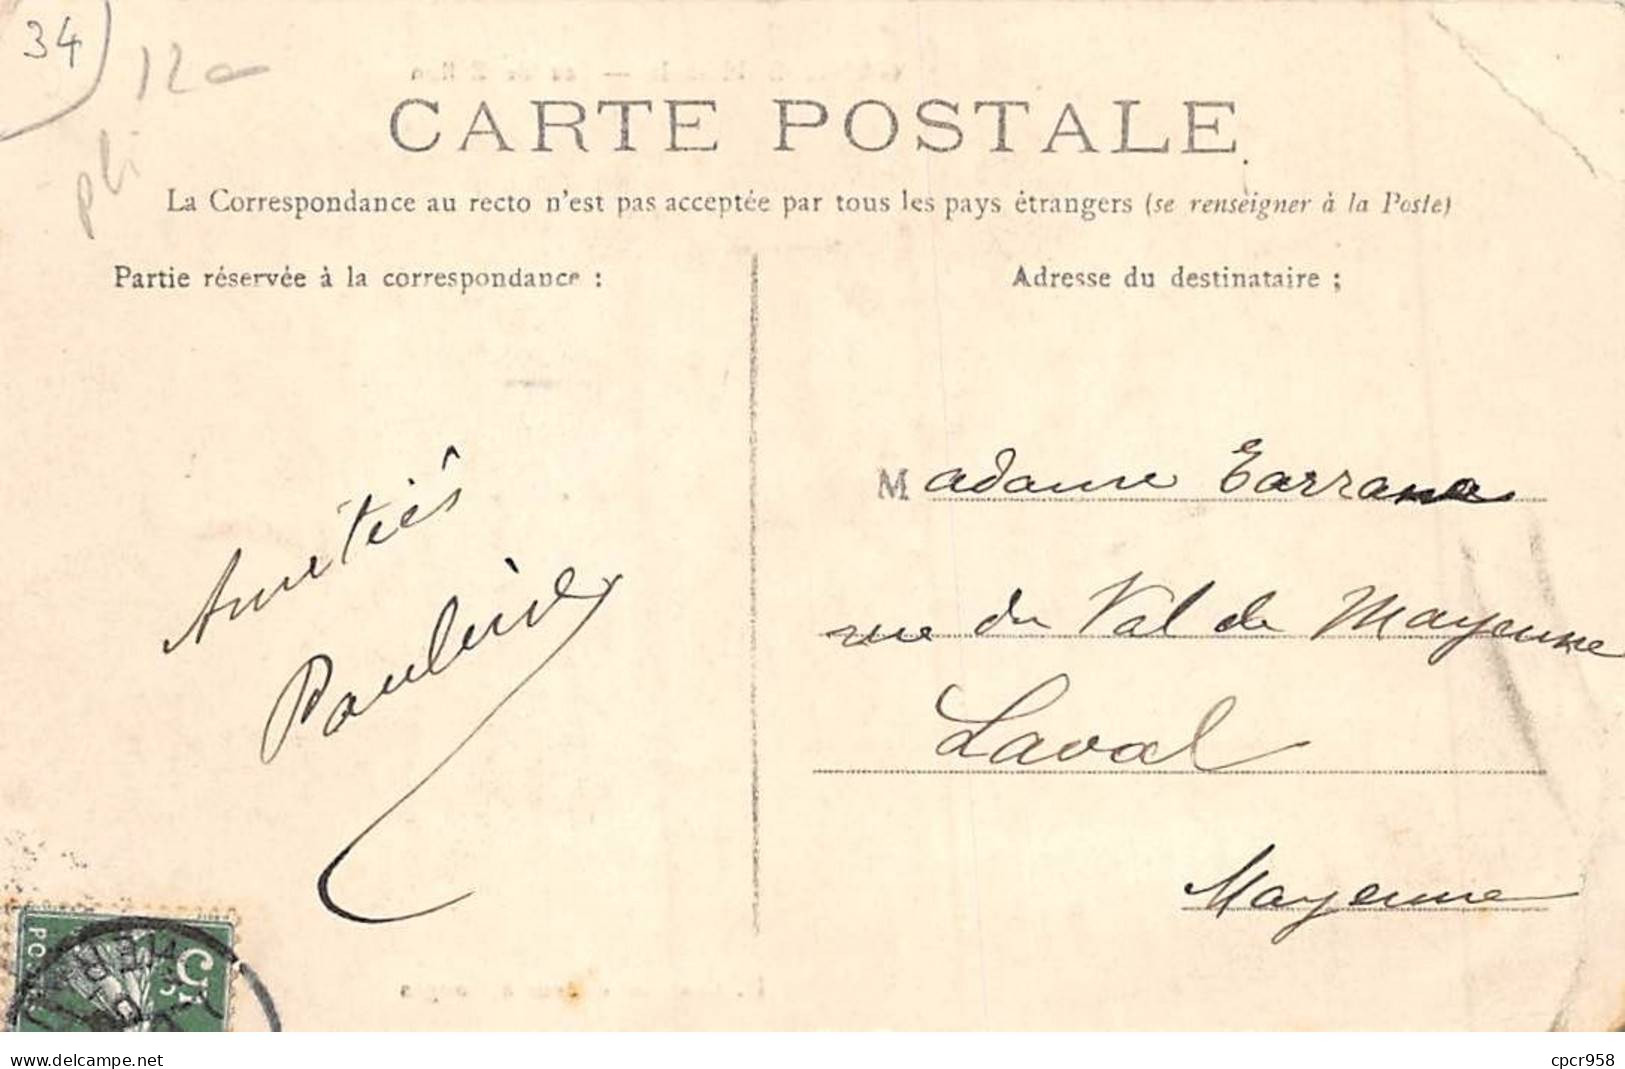 34
12e
pli
CARTE POSTALE
La Correspondance au recto n'est pas acceptée par tous les pays étrangers (se renseigner à la Poste)
Partie réservée à la correspondance :
Adresse du destinataire ;
Amitiés
Pauline
Madame
rue du Val de Mayenne
Laval
Mayenne
5c
https://www.delcampe.net
cpcr958